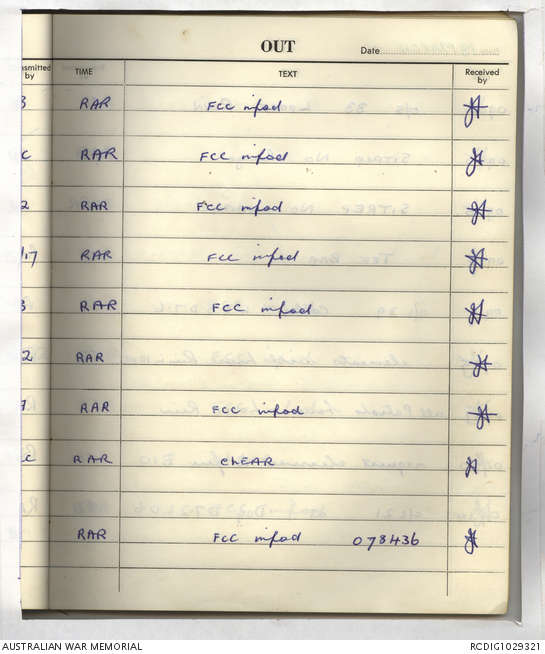 OUT
Date
nsmitted by TIME TEXT Received by
3 RAR FCC infod
c RAR FCC infod
2 RAR FCC infod
/17 RAR FCC infod
3 RAR FCC infod
2 RAR
7 RAR FCC infod
c RAR CLEAR
RAR FCC infod 078436
AUSTRALIAN WAR MEMORIAL RCDIG1029321